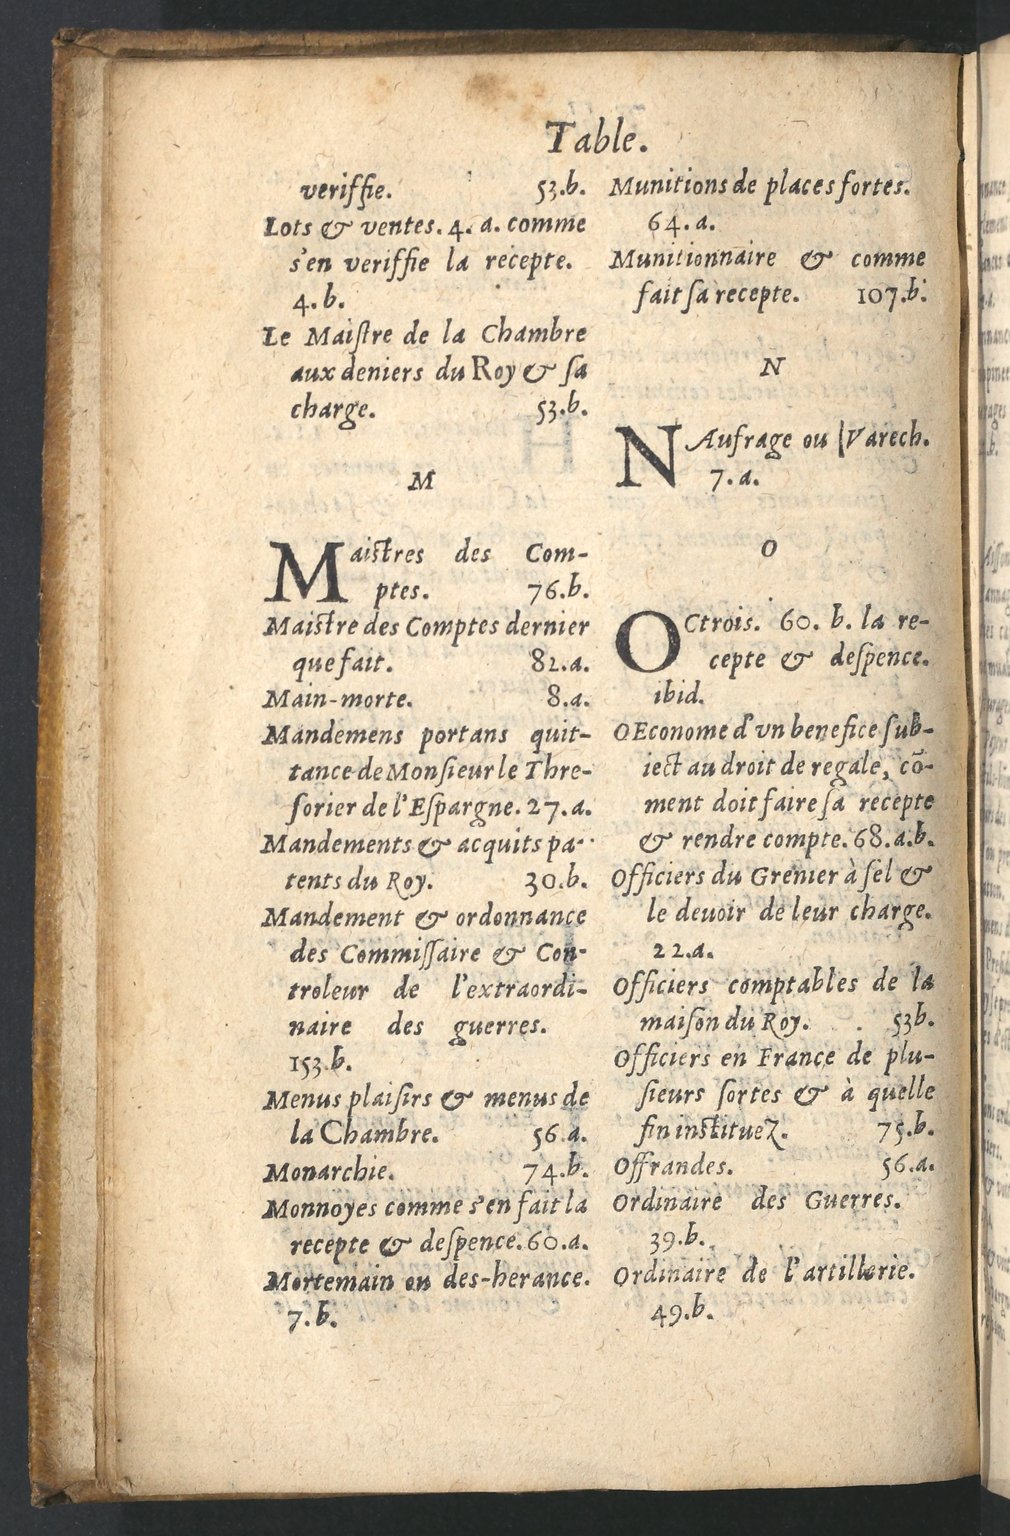 Table.
veriffie. 53.b.
Lots & ventes. 4. a. comme
s'en veriffie la recepte.
4.b.
Le Maiſtre de la Chambre
aux deniers du Roy & ſa
charge. 53.b.
M
Maiſtres des Com-
ptes. 76.b.
Maiſtre des Comptes dernier
que fait. 82.a.
Main-morte. 8.a.
Mandemens portans quit-
tance de Monſieur le Thre-
ſorier de l'Eſpargne. 27.a.
Mandements & acquits pa-
tents du Roy. 30.b.
Mandement & ordonnance
des Commiſſaire & Con-
troleur de l'extraordi-
naire des guerres.
153.b.
Menus plaiſirs & menus de
la Chambre. 56.a.
Monarchie. 74.b.
Monnoyes comme s'en fait la
recepte & deſpence. 60.a.
Mortemain ou des-herance.
7.b.
Munitions de places fortes.
64.a.
Munitionnaire & comme
fait ſa recepte. 107.b.
N
NAufrage ou Varech.
7.a.
O
OCtrois. 60. b. la re-
cepte & deſpence.
ibid.
OEconome d'vn benefice ſub-
iect au droit de regale, cō-
ment doit faire ſa recepte
& rendre compte. 68.a.b.
Officiers du Grenier à ſel &
le deuoir de leur charge.
22.a.
Officiers comptables de la
maiſon du Roy. 53b.
Officiers en France de plu-
ſieurs ſortes & à quelle
fin inſtituez. 75.b.
Offrandes. 56.a.
Ordinaire des Guerres.
39.b.
Ordinaire de l'artillerie.
49.b.